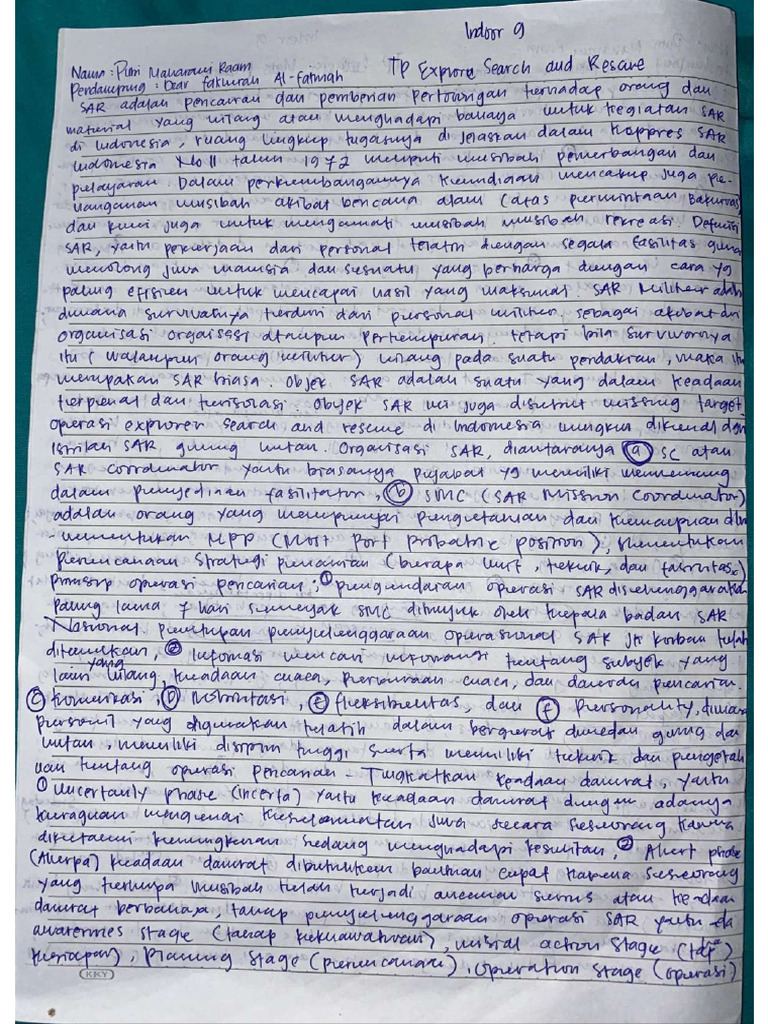 Indoor 9
Nama : Putri Maharani Raam
Pendamping : Dear fakhirah Al-fatihah TP Explore Search and Rescue
SAR adalah pencarian dan pemberian pertolongan terhadap orang dan
material yang hilang atau menghadapi bahaya untuk kegiatan SAR
di Indonesia, ruang lingkup tugasnya di jelaskan dalam Keppres SAR
Indonesia No 11 tahun 1972 meliputi musibah penerbangan dan
pelayaran. Dalam perkembangannya kemudian mencakup juga pe-
nanganan musibah akibat bencana alam (atas permintaan Bakornas)
dan kini juga untuk mengamati musibah musibah rekreasi. Definisi
SAR, yaitu pekerjaan dari personal terlatih dengan segala fasilitas guna
menolong jiwa manusia dan sesuatu yang berharga dengan cara yg
paling efisien untuk mencapai hasil yang maksimal. SAR Militer adlh
dimana survivalnya terdiri dari personal militer. sebagai akibat dri
organisasi ataupun pertempuran. tetapi bila survivornya
itu (walaupun orang militer) hilang pada suatu pendakian, maka itu
merupakan SAR biasa. Objek SAR adalah suatu yang dalam keadaan
terpencil dan terisolasi. Obyek SAR ini juga disebut missing target.
operasi explorer search and rescue di Indonesia mungkin dikenal dgn
istilah SAR gunung hutan. Organisasi SAR, diantaranya (a) SC atau
SAR coordinator yaitu biasanya pejabat yg memiliki wewenang
dalam penyediaan fasilitator, (b) SMC (SAR Mission Coordinator)
adalah orang yang mempunyai pengetahuan dan kemampuan dlm
menentukan MPP (Most Port Probable position), menentukan
perencanaan strategi pencarian (berapa unit, teknik, dan fasilitas)
prinsip operasi pencarian; (1) pengendalian operasi SAR diselenggarakan
paling lama 7 hari semenjak SMC ditunjuk oleh kepala badan SAR
Nasional. penutupan penyelenggaraan operasional SAR jk korban telah
ditemukan, (2) Informasi mencari informasi tentang subyek yang
lain yang hilang, keadaan cuaca, perkiraan cuaca, dan daerah pencarian.
(c) komunikasi, (D) Mobilitasi, (e) fleksibelitas, dan (f) Personality, dimana
personil yang digunakan terlatih dalam bergerak dimedan gunung dan
hutan, memiliki disiplin tinggi serta memiliki teknik dan pengetah
uan tentang operasi pencarian - Tingkatkan keadaan darurat, yaitu
(1) uncertainly phase (incerfa) yaitu keadaan darurat dengan adanya
keraguan mengenai keselamatan jiwa secara seseorang karena
diketahui kemungkinan sedang menghadapi kesulitan, (2) Alert phase
(Alerpa) keadaan darurat dibutuhkan bantuan cepat karena seseorang
yang tertimpa musibah telah terjadi ancaman serius atau keadaan
darurat berbahaya, tahap penyelenggaraan operasi SAR yaitu
awarennes stage (tahap kekhawatiran), inisial action stage (thp
kesiapan), Planning Stage (perencanaan), operation stage (operasi)
KKY